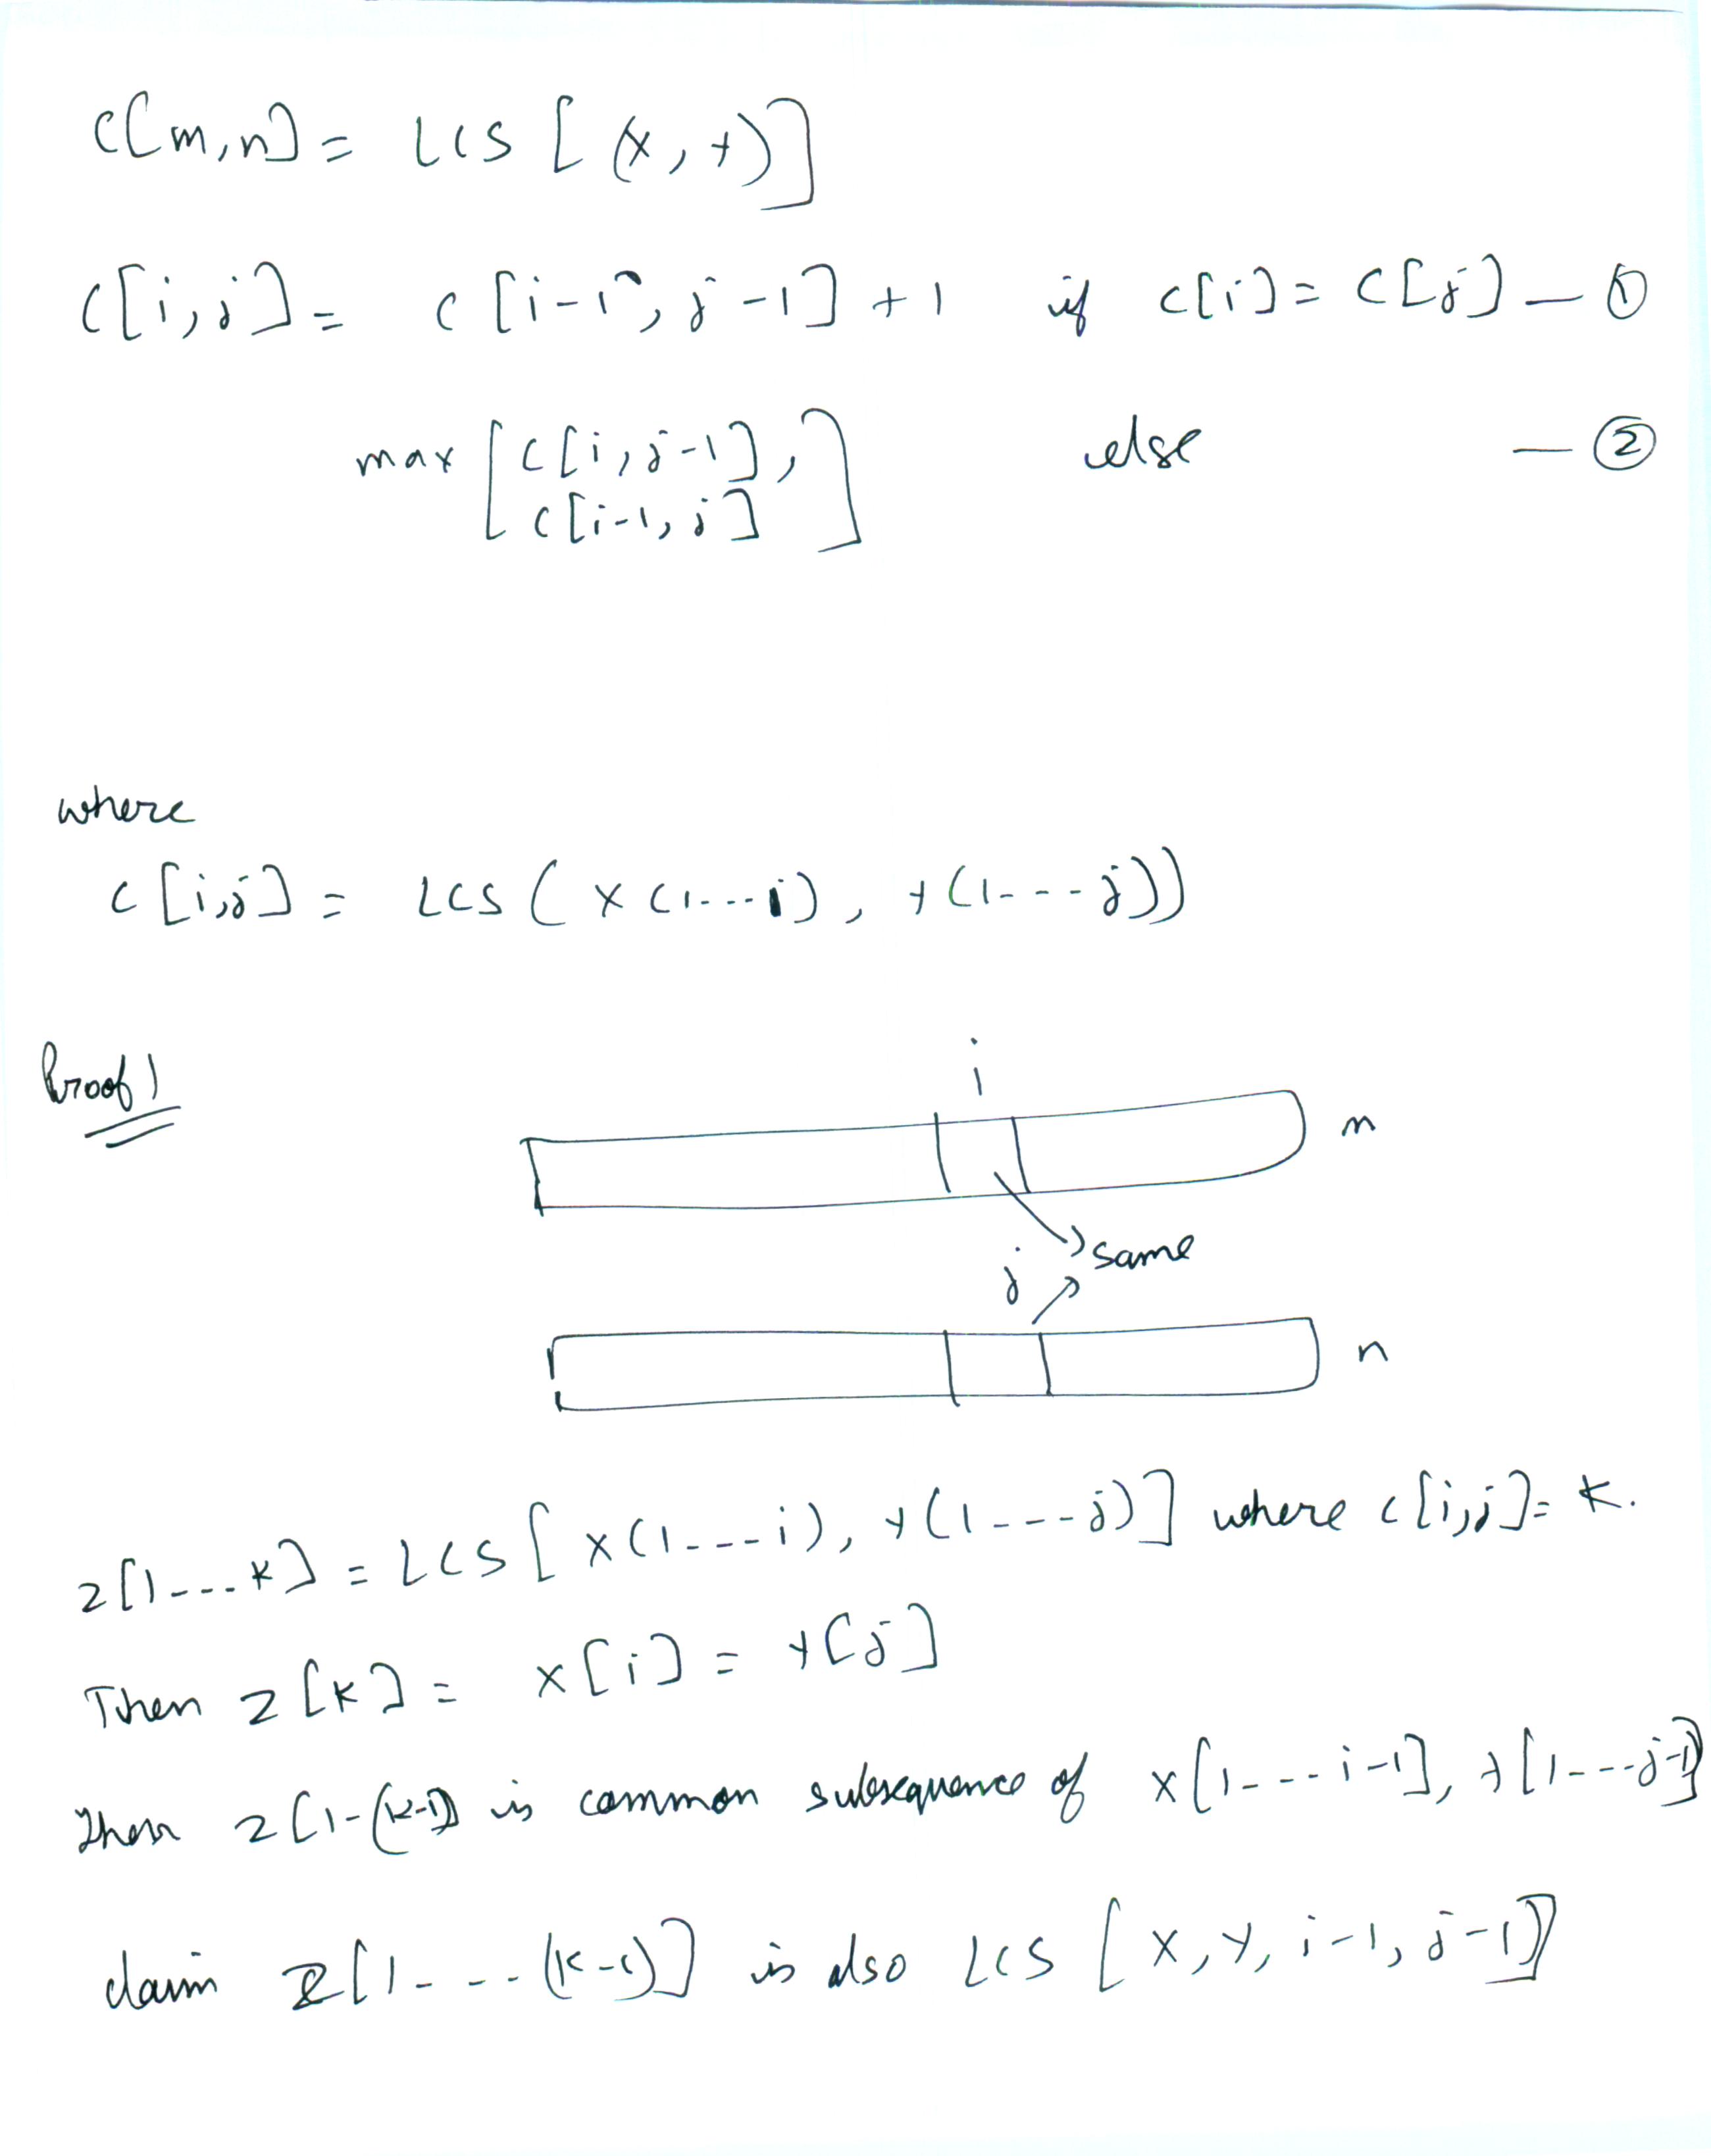 c[m,n] = LCS [(x,y)]
c[i,j] = c[i-1, j-1] + 1 if c[i] = c[j] — ①
max [c[i,j-1], else — ②
c[i-1,j]]
where
c[i,j] = LCS (x(1---i), y(1---j))
Proof 1
i
m
same
j
n
z[1---k] = LCS [x(1---i), y(1---j)] where c[i,j] = k.
Then z[k] = x[i] = y[j]
then z[1-(k-1)] is common subsequence of x[1---i-1], y[1---j-1]
claim z[1---(k-1)] is also LCS [x,y, i-1, j-1]